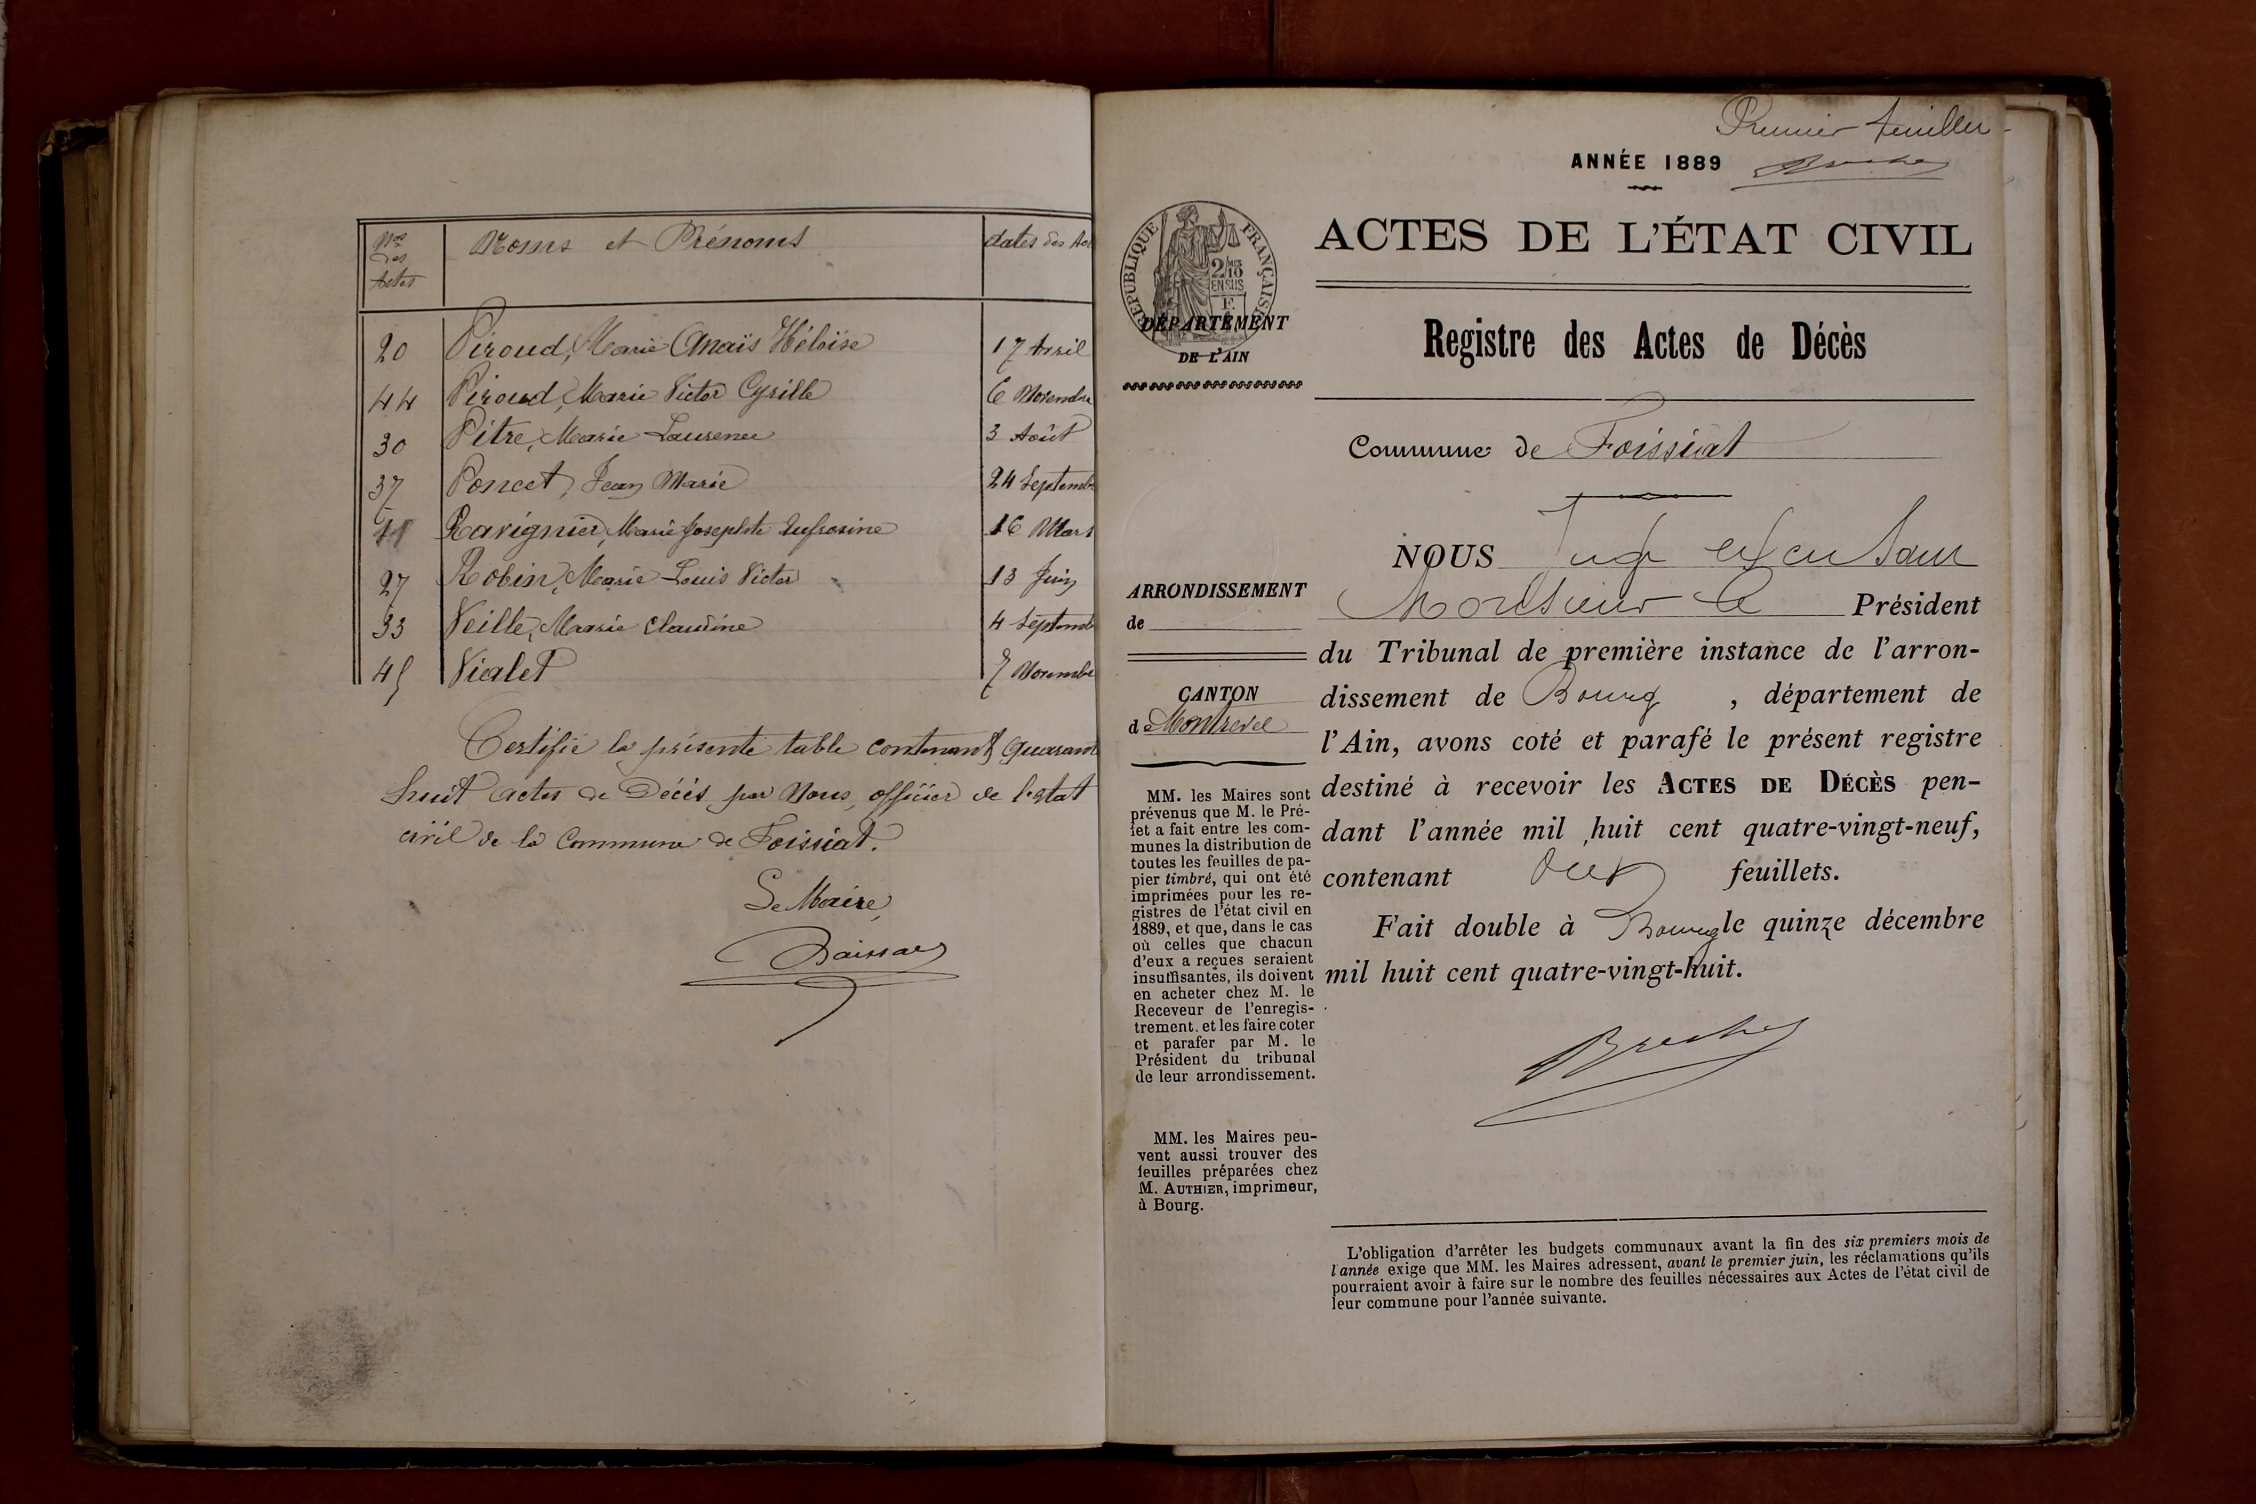 Nos des Actes
Noms et Prénoms
dates des Act
20 Piroud, Marie Anaïs Héloïse 17 Avril
44 Piroud, Marie Victor Cyrille 6 Novembre
30 Pitre, Marie Laurence 3 Août
37 Poncet, Jean Marie 24 Septembre
11 Ravignier, Marie Josephte Eufrosine 16 Mars
27 Robin, Marie Louis Victor 13 Juin
33 Veille, Marie Claudine 4 Septemb
45 Vialet 7 Novembre
Certifié la présente table contenant quarante
huit actes de Décès par Nous, officier de l'etat
civil de la Commune de Foissiat.
Le Maire,
Premier feuillet
ANNÉE 1889
RÉPUBLIQUE FRANÇAISE
2/10
EN SUS
DÉPARTEMENT
DE L'AIN
ACTES DE L'ÉTAT CIVIL
Registre des Actes de Décès
Commune de Foissiat
ARRONDISSEMENT
de
CANTON
de Montrevel
MM. les Maires sont
prévenus que M. le Pré-
fet a fait entre les com-
munes la distribution de
toutes les feuilles de pa-
pier timbré, qui ont été
imprimées pour les re-
gistres de l'état civil en
1889, et que, dans le cas
où celles que chacun
d'eux a reçues seraient
insuffisantes, ils doivent
en acheter chez M. le
Receveur de l'enregis-
trement, et les faire coter
et parafer par M. le
Président du tribunal
de leur arrondissement.
MM. les Maires peu-
vent aussi trouver des
feuilles préparées chez
M. AUTHIER, imprimeur,
à Bourg.
NOUS Juge
Monsieur le Président
du Tribunal de première instance de l'arron-
dissement de Bourg, département de
l'Ain, avons coté et parafé le présent registre
destiné à recevoir les ACTES DE DÉCÈS pen-
dant l'année mil huit cent quatre-vingt-neuf,
contenant feuillets.
Fait double à Bourg le quinze décembre
mil huit cent quatre-vingt-huit.
L'obligation d'arrêter les budgets communaux avant la fin des six premiers mois de
l'année exige que MM. les Maires adressent, avant le premier juin, les réclamations qu'ils
pourraient avoir à faire sur le nombre des feuilles nécessaires aux Actes de l'état civil de
leur commune pour l'année suivante.